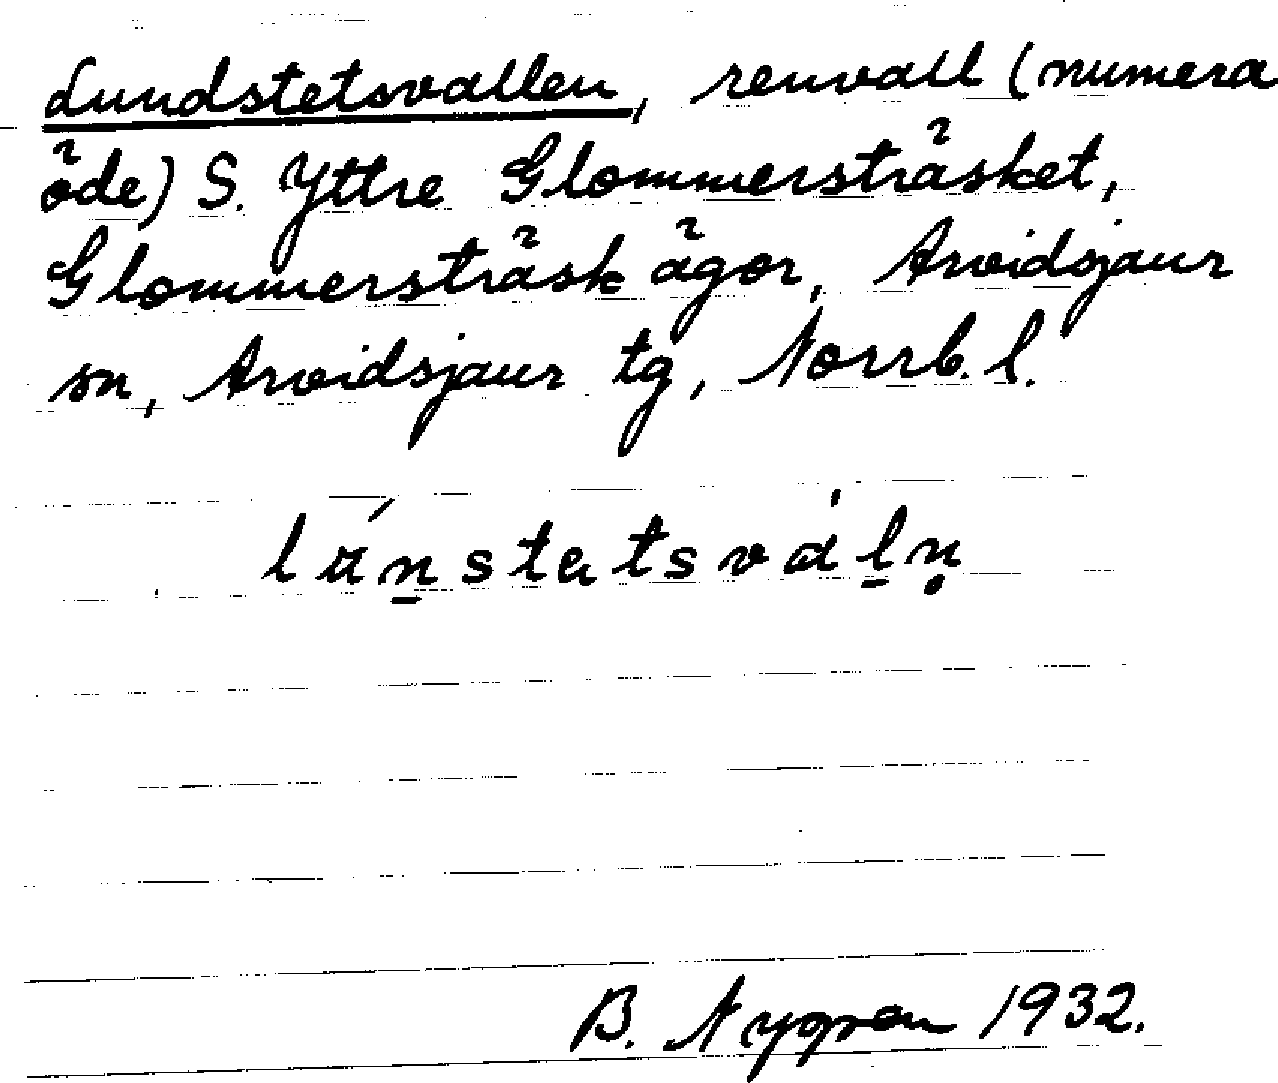 Lundstetsvallen, renvall (numera
öde) S. Yttre Glommersträsket,
Glommersträsk ägor, Arvidsjaur
sn, Arvidsjaur tg, Norrb. l.
B. Nygren 1932.